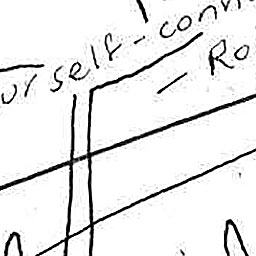 ur self-conn
- Ro